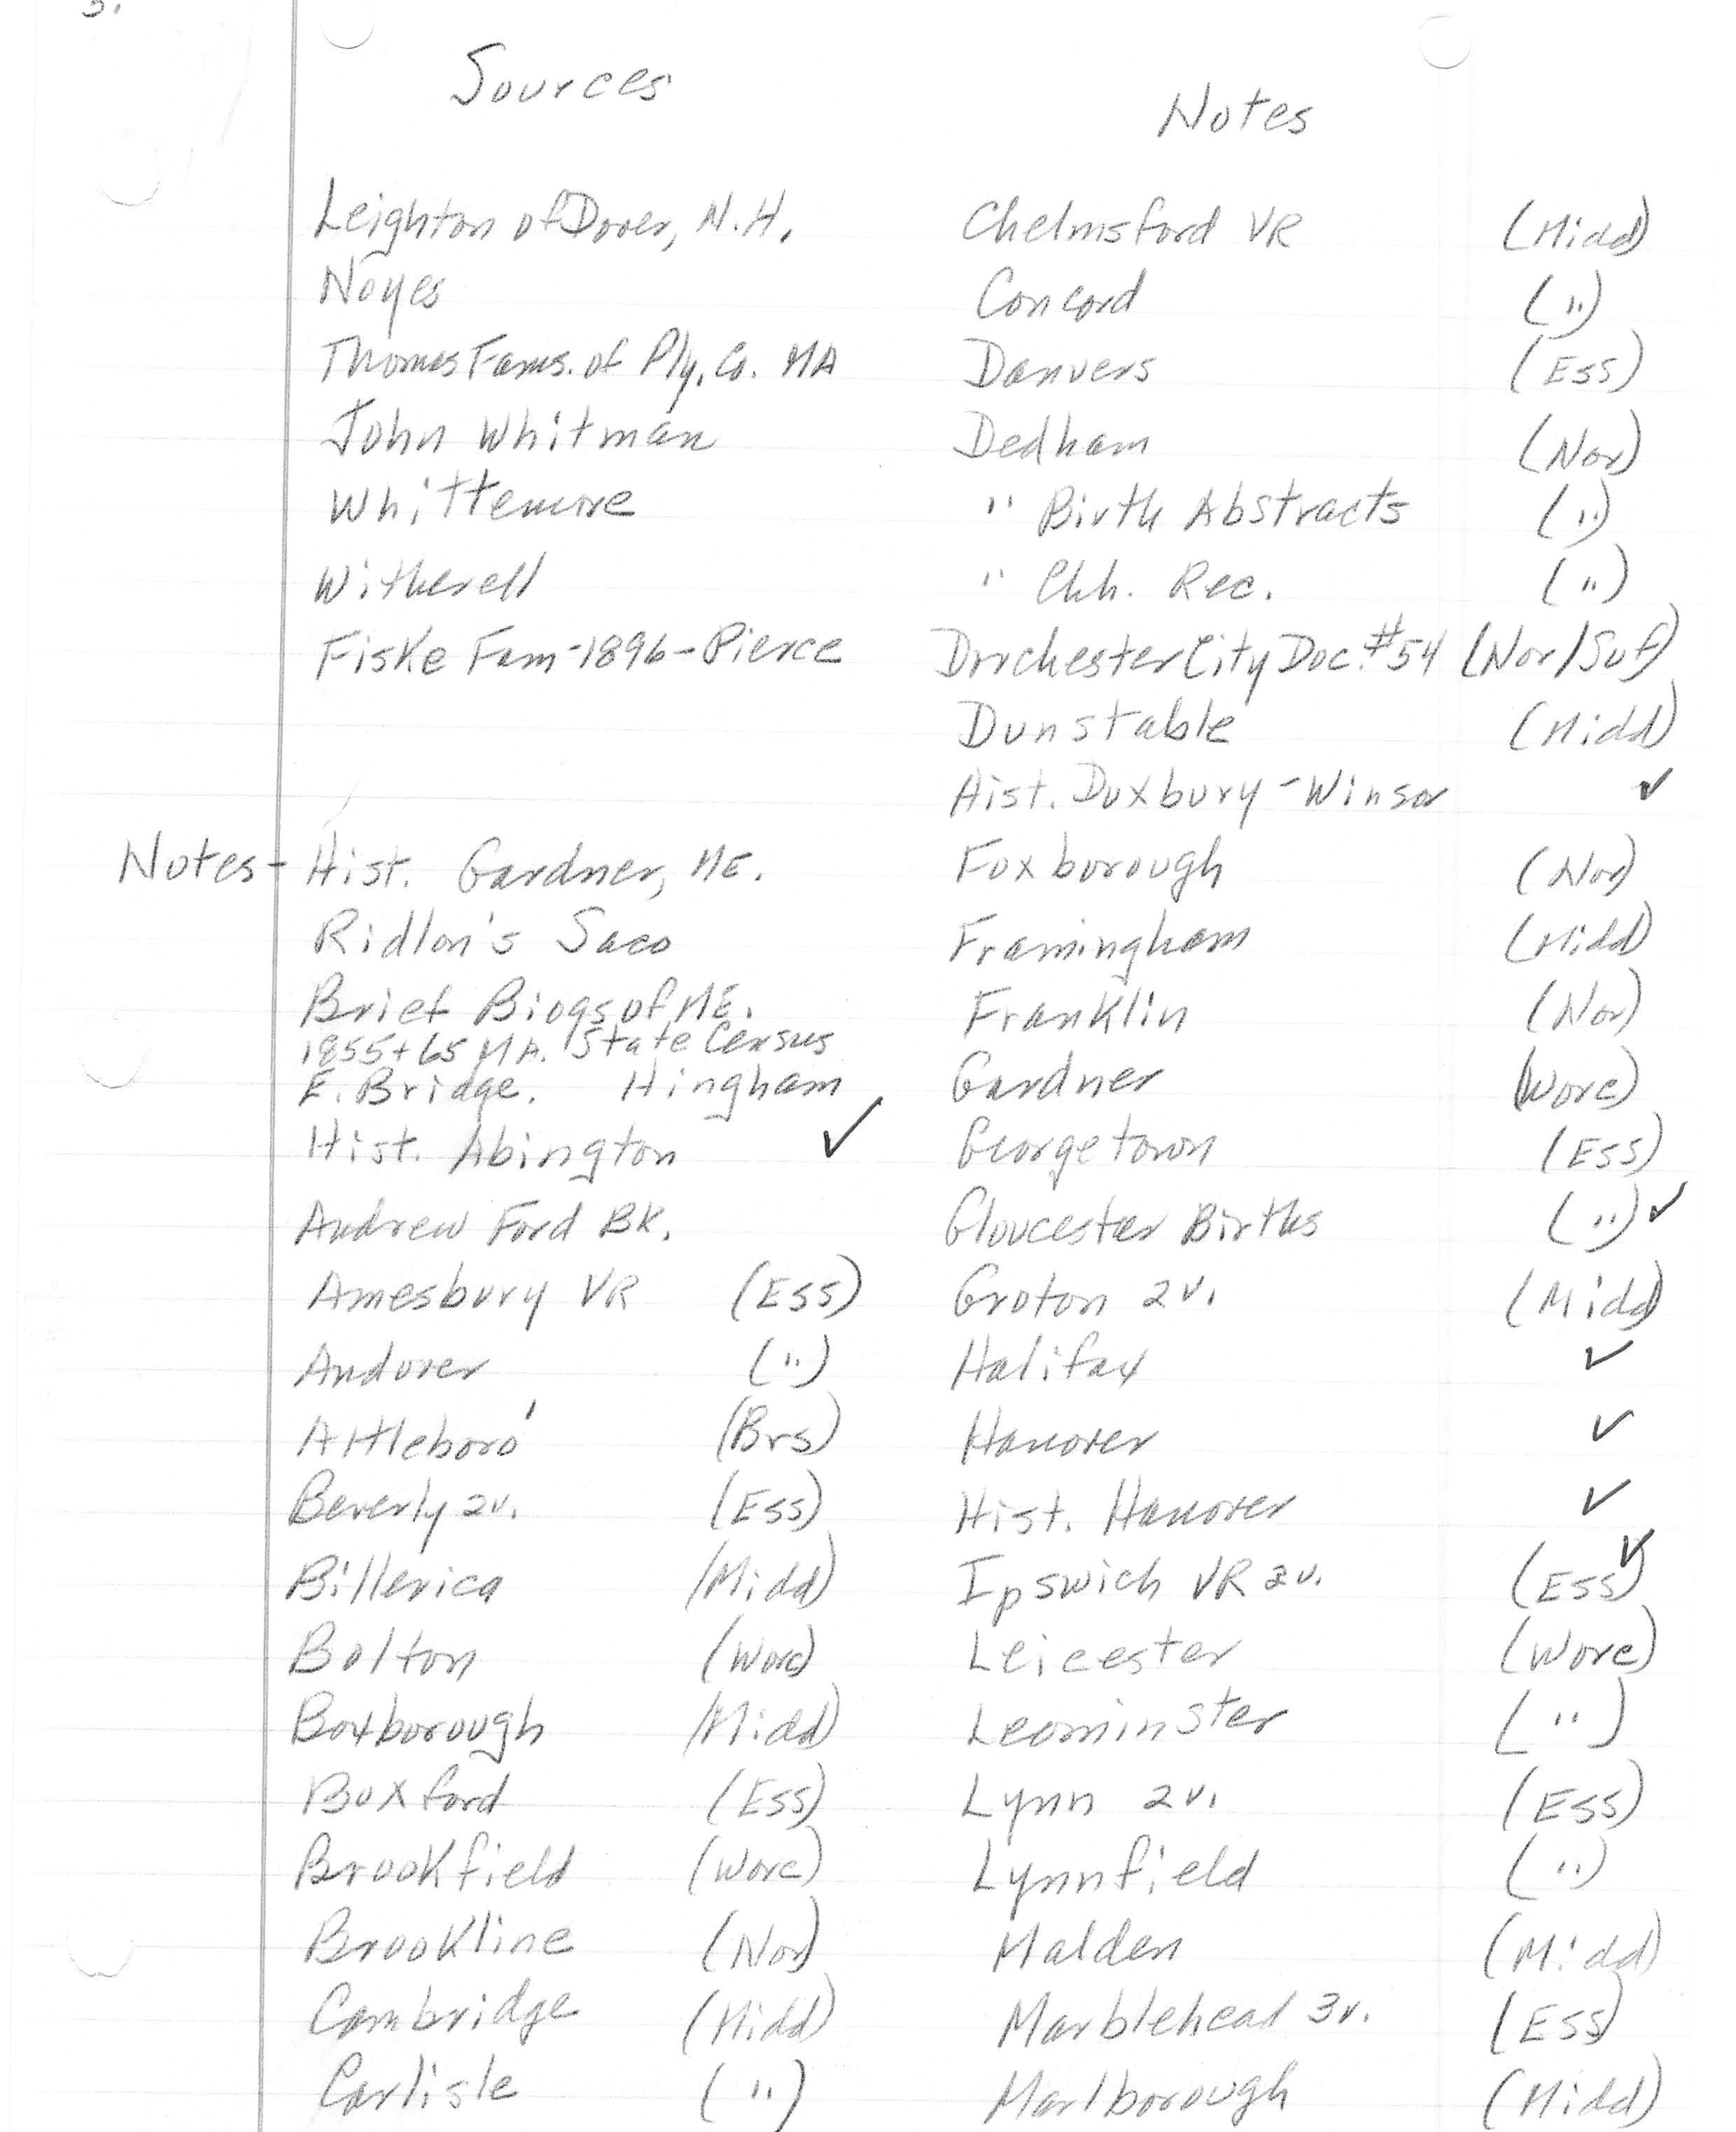 3.
Sources
Leighton of Dover, N.H.
Noyes
Thomas Fams. of Ply. Co. MA
John Whitman
Whittemore
Witherell
Fiske Fam-1896-Pierce
Notes - Hist. Gardner, ME.
Ridlon's Saco
Brief Biogs of ME.
1855+65 MA. State Census
E. Bridge. Hingham
Hist. Abington ✓
Andrew Ford BK.
Amesbury VR (Ess)
Andover (")
Attleboro' (Brs)
Beverly 2v. (Ess)
Billerica (Midd)
Bolton (Worc)
Boxborough (Midd)
Boxford (Ess)
Brookfield (Worc)
Brookline (Nor)
Cambridge (Midd)
Carlisle (")
Notes
Chelmsford VR (Midd)
Concord (")
Danvers (Ess)
Dedham (Nor)
" Birth Abstracts (")
" Chh. Rec. (")
Dorchester City Doc. #54 (Nor/Suf)
Dunstable (Midd)
Hist. Duxbury - Winsor ✓
Foxborough (Nor)
Framingham (Midd)
Franklin (Nor)
Gardner (Worc)
Georgetown (Ess)
Gloucester Births (") ✓
Groton 2v. (Midd)
Halifax ✓
Hanover ✓
Hist. Hanover ✓
Ipswich VR 2v. (Ess) ✓
Leicester (Worc)
Leominster (")
Lynn 2v. (Ess)
Lynnfield (")
Malden (Midd)
Marblehead 3v. (Ess)
Marlborough (Midd)